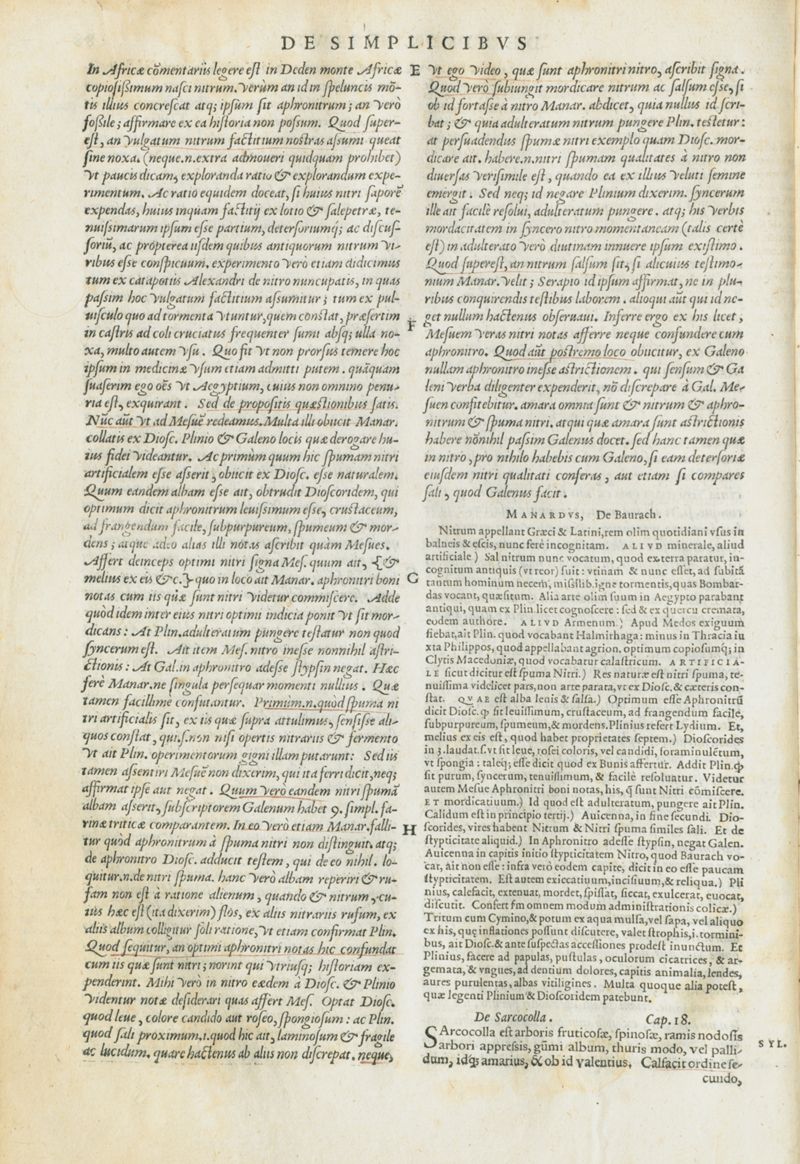 DE SIMPLICIBVS
In Africæ cōmentariis legere est in Deden monte Africæ
copiosissimum nasci nitrum. Verùm an id in speluncis mō-
tis illius concrescat atq; ipsum sit aphronitrum; an verò
fossile; affirmare ex ea historia non possum. Quod super-
est, an vulgatum nitrum factitium nostras assumi queat
sine noxa. (neque.n.extra admoueri quidquam prohibet)
Vt paucis dicam, exploranda ratio & explorandum expe-
rimentum. Ac ratio equidem doceat, si huius nitri saporē
expendas, huius inquam factitij ex lotio & salepetræ, te-
nuissimarum ipsum esse partium, detersoriumq; ac discus-
soriū, ac propterea iisdem quibus antiquorum nitrum vi-
ribus esse conspicuum. experimento verò etiam didicimus
tum ex catapotiis Alexandri de nitro nuncupatis, in quas
passim hoc vulgatum factitium assumitur; tum ex pul-
uisculo quo ad tormenta vtuntur, quem constat, præsertim
in castris ad coli cruciatus frequenter sumi absq; ulla no-
xa, multo autem vsu. Quo fit vt non prorsus temere hoc
ipsum in medicinæ vsum etiam admitti putem. quāquam
suaserim ego oēs vt Aegyptium, cuius non omnino penu-
ria est, exquirant. Sed de propositis quæstionibus satis.
Nūc aūt vt ad Mesuē redeamus. Multa illi obiicit Manar.
collatis ex Diosc. Plinio & Galeno locis quæ derogare hu-
ius fidei videantur. Ac primùm quum hic spumam nitri
artificialem esse asserit, obiicit ex Diosc. esse naturalem.
Quum eandem albam esse ait, obtrudit Dioscoridem, qui
optimum dicit aphronitrum leuissimum esse, crustaceum,
ad frangendum facile, subpurpureum, spumeum & mor-
dens; atque adeo alias illi notas ascribit quàm Mesues.
Affert deinceps optimi nitri signa Mes. quum ait, {&
melius ex eis &c.} quo in loco ait Manar. aphronitri boni
notas cum iis quæ sunt nitri videtur commiscere. Adde
quòd idem inter eius nitri optimi indicia ponit vt sit mor-
dicans: At Plin. adulteratum pungere testatur non quod
syncerum est. Ait item Mes. nitro inesse nonnihil astri-
ctionis: At Gal. in aphronitro adesse stypsin negat. Hæc
ferè Manar. ne singula persequar momenti nullius. Quæ
tamen facillime confutantur. Primùm.n. quòd spuma ni
tri artificialis sit, ex iis quæ supra attulimus, sensisse ali-
quos constat, qui.s.non nisi opertis nitrariis & fermento
vt ait Plin. operimentorum gigni illam putarunt: Sed iis
tamen assentiri Mesuē non dixerim, qui ita ferri dicit, neq;
affirmat ipse aut negat. Quum verò eandem nitri spumā
albam asserit, subscriptorem Galenum habet 9. simpl. fa-
rinæ triticæ comparantem. In eo verò etiam Manar. falli-
tur quòd aphronitrum à spuma nitri non distinguit. atq;
de aphronitro Diosc. adducit testem, qui de eo nihil. lo-
quitur.n. de nitri spuma. hanc verò albam reperiri & ru-
fam non est à ratione alienum, quando & nitrum, cu-
ius hæc est (ita dixerim) flos, ex aliis nitrariis rufum, ex
aliis album colligitur soli ratione, vt etiam confirmat Plin.
Quod sequitur, an optimi aphronitri notas hic confundat
cum iis quæ sunt nitri; norint qui vtriusq; historiam ex-
penderint. Mihi verò in nitro eædem à Diosc. & Plinio
videntur notæ desiderari quas affert Mes. Optat Diosc.
quod leue, colore candido aut roseo, spongiosum: ac Plin.
quod sali proximum.i. quod hic ait, laminosum & fragile
ac lucidum. quare hactenus ab aliis non discrepat. neque,
E
Vt ego video, quæ sunt aphronitri nitro, ascribit signa.
Quod verò subiungit mordicare nitrum ac salsum esse, si
ob id fortasse à nitro Manar. abdicet, quia nullus id scri-
bat; & quia adulteratum nitrum pungere Plin. testetur:
at persuadendus spumæ nitri exemplo quam Diosc. mor-
dicare ait. habere.n. nitri spumam qualitates à nitro non
diuersas verisimile est, quando ea ex illius veluti semine
emergit. Sed neq; id negare Plinium dixerim. syncerum
ille ait facilè resolui, adulteratum pungere. atq; his verbis
mordacitatem in syncero nitro momentaneam (talis certè
est) in adulterato verò diutinam innuere ipsum existimo.
Quod superest, an nitrum salsum sit, si alicuius testimo-
nium Manar. velit; Serapio id ipsum affirmat, ne in plu-
ribus conquirendis testibus laborem. alioqui aūt qui id ne-
F
get nullum hactenus obseruaui. Inferre ergo ex his licet,
Mesuem veras nitri notas afferre neque confundere cum
aphronitro. Quod aūt postremo loco obiicitur, ex Galeno
nullam aphronitro inesse astrictionem. qui sensum & Ga
leni verba diligenter expenderit, nō discrepare à Gal. Me-
suen confitebitur. amara omnia sunt & nitrum & aphro-
nitrum & spuma nitri. atqui quæ amara sunt astrictionis
habere nōnihil passim Galenus docet. sed hanc tamen quæ
in nitro, pro nihilo habebis cum Galeno, si eam detersoriæ
eiusdem nitri qualitati conferas, aut etiam si compares
sali, quod Galenus facit.
MANARDVS, De Baurach.
Nitrum appellant Græci & Latini, rem olim quotidiani vsus in
balneis & escis, nunc ferè incognitam. ALIVD minerale, aliud
artificiale) Sal nitrum nunc vocatum, quod ex terra paratur, in-
cognitum antiquis (vt reor) fuit: vtinam & nunc esset, ad subitā
G
tantum hominum necem, missilib. igne tormentis, quas Bombar-
das vocant, quæsitum. Alia arte olim suum in Aegypto parabant
antiqui, quam ex Plin. licet cognoscere: sed & ex quercu cremata,
eodem authore. ALIVD Armenum) Apud Medos exiguum
fiebat, ait Plin. quod vocabant Halmirhaga: minus in Thracia iu
xta Philippos, quod appellabant agrion. optimum copiosumq; in
Clytis Macedoniæ, quod vocabatur calastricum. ARTIFICIA-
LE sicut dicitur est spuma Nitri.) Res naturæ est nitri spuma, te-
nuissima videlicet pars, non arte parata, vt ex Diosc. & cæteris con-
stat. QVAE est alba lenis & salsa.) Optimum esse Aphronitrū
dicit Diosc. ꝙ sit leuissimum, crustaceum, ad frangendum facile,
subpurpureum, spumeum, & mordens, Plinius refert Lydium. Et,
melius ex eis est, quod habet proprietates septem.) Dioscorides
in 5. laudat.s.vt sit leue, rosei coloris, vel candidi, foraminulētum,
vt spongia: taleq; esse dicit quod ex Bunis affertur. Addit Plin. ꝙ
sit purum, syncerum, tenuissimum, & facilè resoluatur. Videtur
autem Mesue Aphronitri boni notas, his, q̄ sunt Nitri cōmiscere.
ET mordicatiuum.) Id quod est adulteratum, pungere ait Plin.
Calidum est in principio tertij.) Auicenna, in fine secundi. Dio-
H
scorides, vires habent Nitrum & Nitri spuma similes sali. Et de
stypticitate aliquid.) In Aphronitro adesse stypsin, negat Galen.
Auicenna in capitis initio stypticitatem Nitro, quod Baurach vo-
car, ait non esse: infra verò eodem capite, dicit in eo esse paucam
stypticitatem. Est autem exiccatiuum, incisiuum, & reliqua.) Pli
nius, calefacit, extenuat, mordet, spissat, siccat, exulcerat, euocat,
discutit. Confert sm omnem modum administrationis colicæ.)
Tritum cum Cymino, & potum ex aqua mulsa, vel sapa, vel aliquo
ex his, quę inflationes possunt discutere, valet strophis, i. tormini-
bus, ait Diosc. & ante suspectas accessiones prodest inunctum. Et
Plinius, facere ad papulas, pustulas, oculorum cicatrices, & ar-
gemata, & vngues, ad dentium dolores, capitis animalia, lendes,
aures purulentas, albas vitiligines. Multa quoque alia potest,
quæ legenti Plinium & Dioscoridem patebunt.
De Sarcocolla. Cap. 18.
SArcocolla est arboris fruticosæ, spinosæ, ramis nodosis
SYL.
arbori appressis, gūmi album, thuris modo, vel palli-
dum, idq; amarius, & ob id valentius. Calfacit ordine se-
cundo,